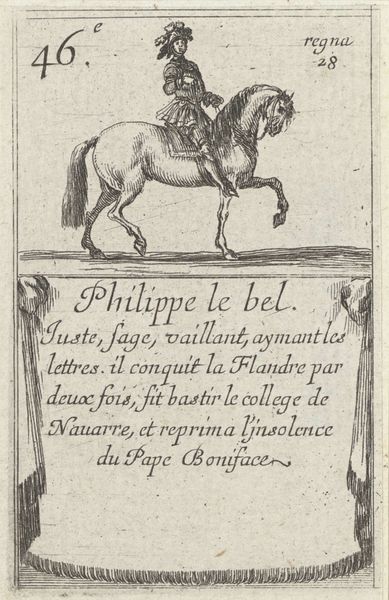 46.e
regna
28
Philippe le bel.
Iuste, sage, vaillant, aymant les
lettres. il conquit la Flandre par
deux fois, fit bastir le college de
Nauarre, et reprima l'jnsolence
du Pape Boniface